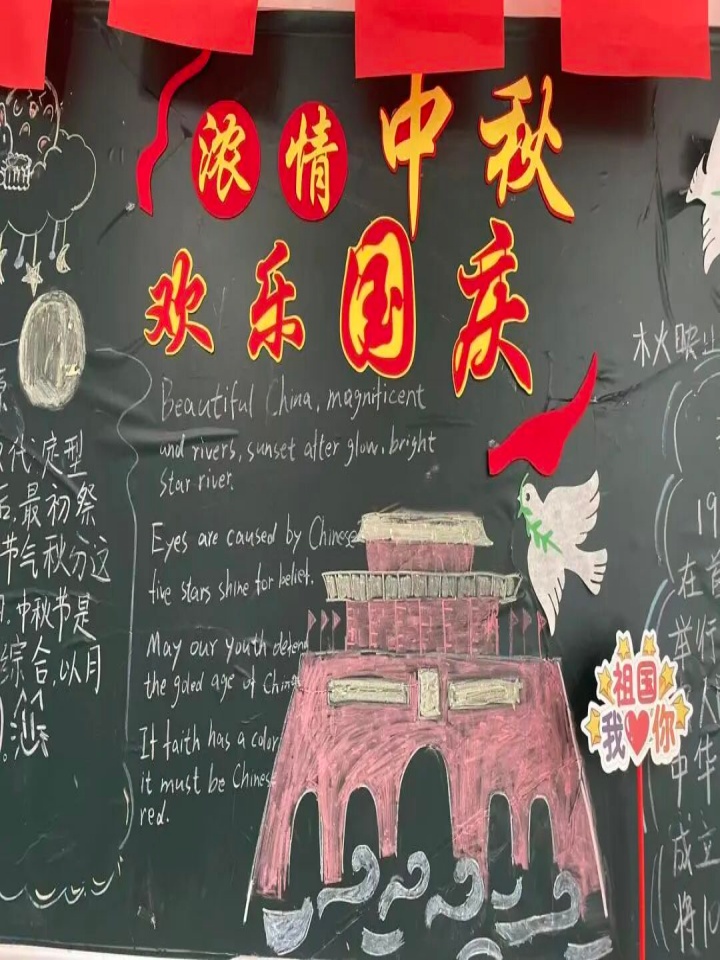 浓情中秋
欢乐国庆
Beautiful China, magnificent
and rivers, sunset after glow, bright
Star river.
Eyes are caused by Chinese
five stars shine for belief.
May our youth defend
the goled age of China
If faith has a color
it must be Chinese
red.
代定型
后,最初祭
节气秋分这
中秋节是
综合,以月
祖国
我 你
木火映
19
在首
举行
人
中华
成立
将10